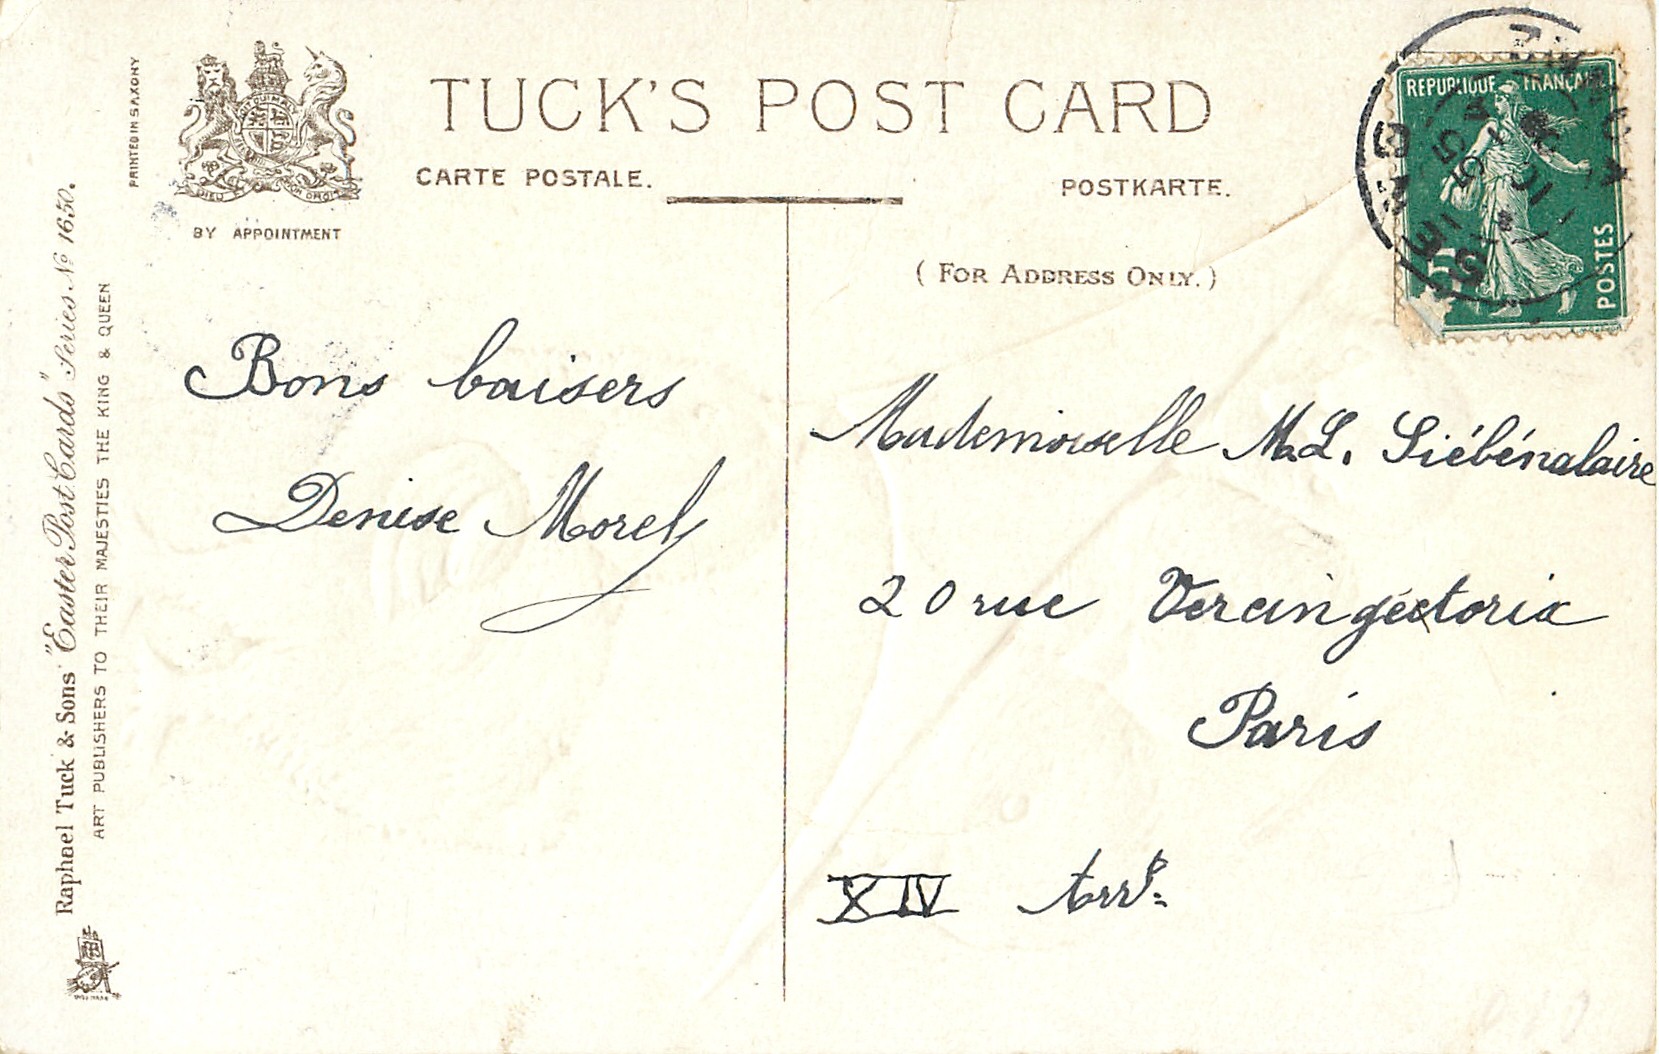 TUCK'S POST CARD
CARTE POSTALE.
POSTKARTE.
BY APPOINTMENT
(FOR ADDRESS ONLY.)
PRINTED IN SAXONY
Raphael Tuck & Sons' "Easter Post Cards" Series Nº 1650.
ART PUBLISHERS TO THEIR MAJESTIES THE KING & QUEEN
REPUBLIQUE FRANÇAISE
POSTES
Bons baisers
Denise Morel
Mademoiselle M.L. Siébénalaire
20 rue Vercingétorix
Paris
XIV Arrt